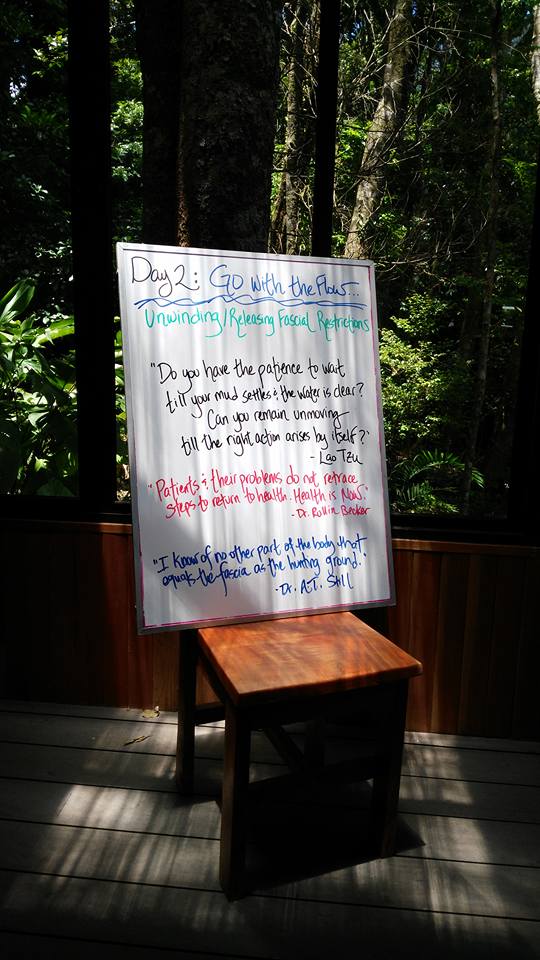 Day 2: Go with the Flow...
Unwinding/Releasing Fascial Restrictions
"Do you have the patience to wait
till your mud settles & the water is clear?
Can you remain unmoving
till the right action arises by itself?"
- Lao Tzu
"Patients & their problems do not retrace
steps to return to health. Health is Now."
- Dr. Rollin Becker
"I know of no other part of the body that
equals the fascia as the hunting ground."
- Dr. A.T. Still